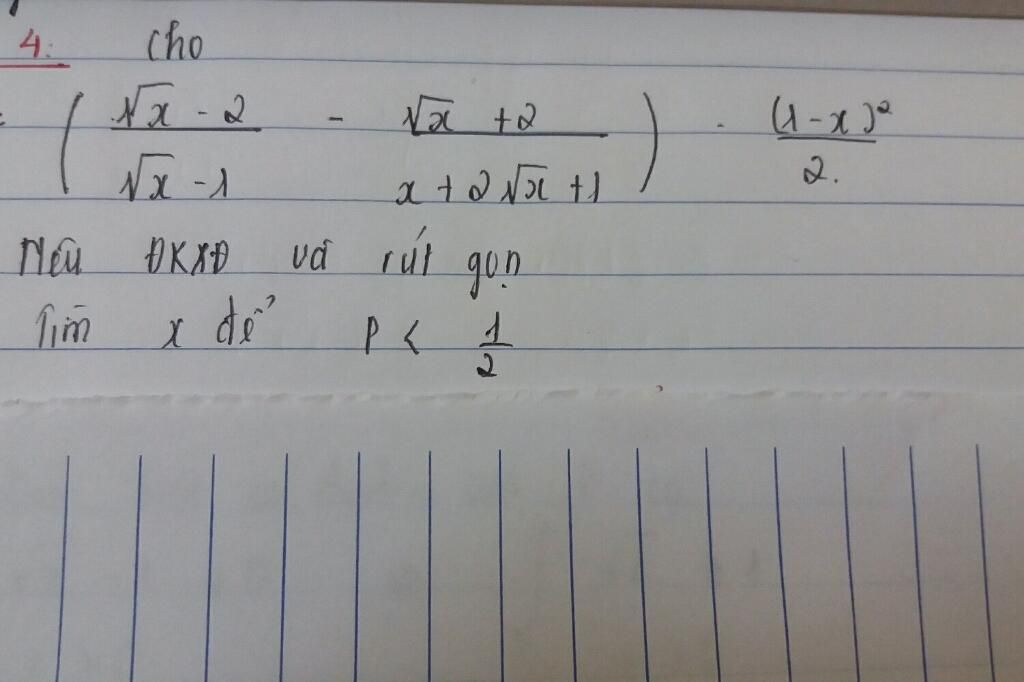 4: Cho
= ( (√x - 2)/(√x - 1) - (√x + 2)/(x + 2√x + 1) ) . (1-x)²/2.
Nêu ĐKXĐ và rút gọn
Tìm x để P < 1/2